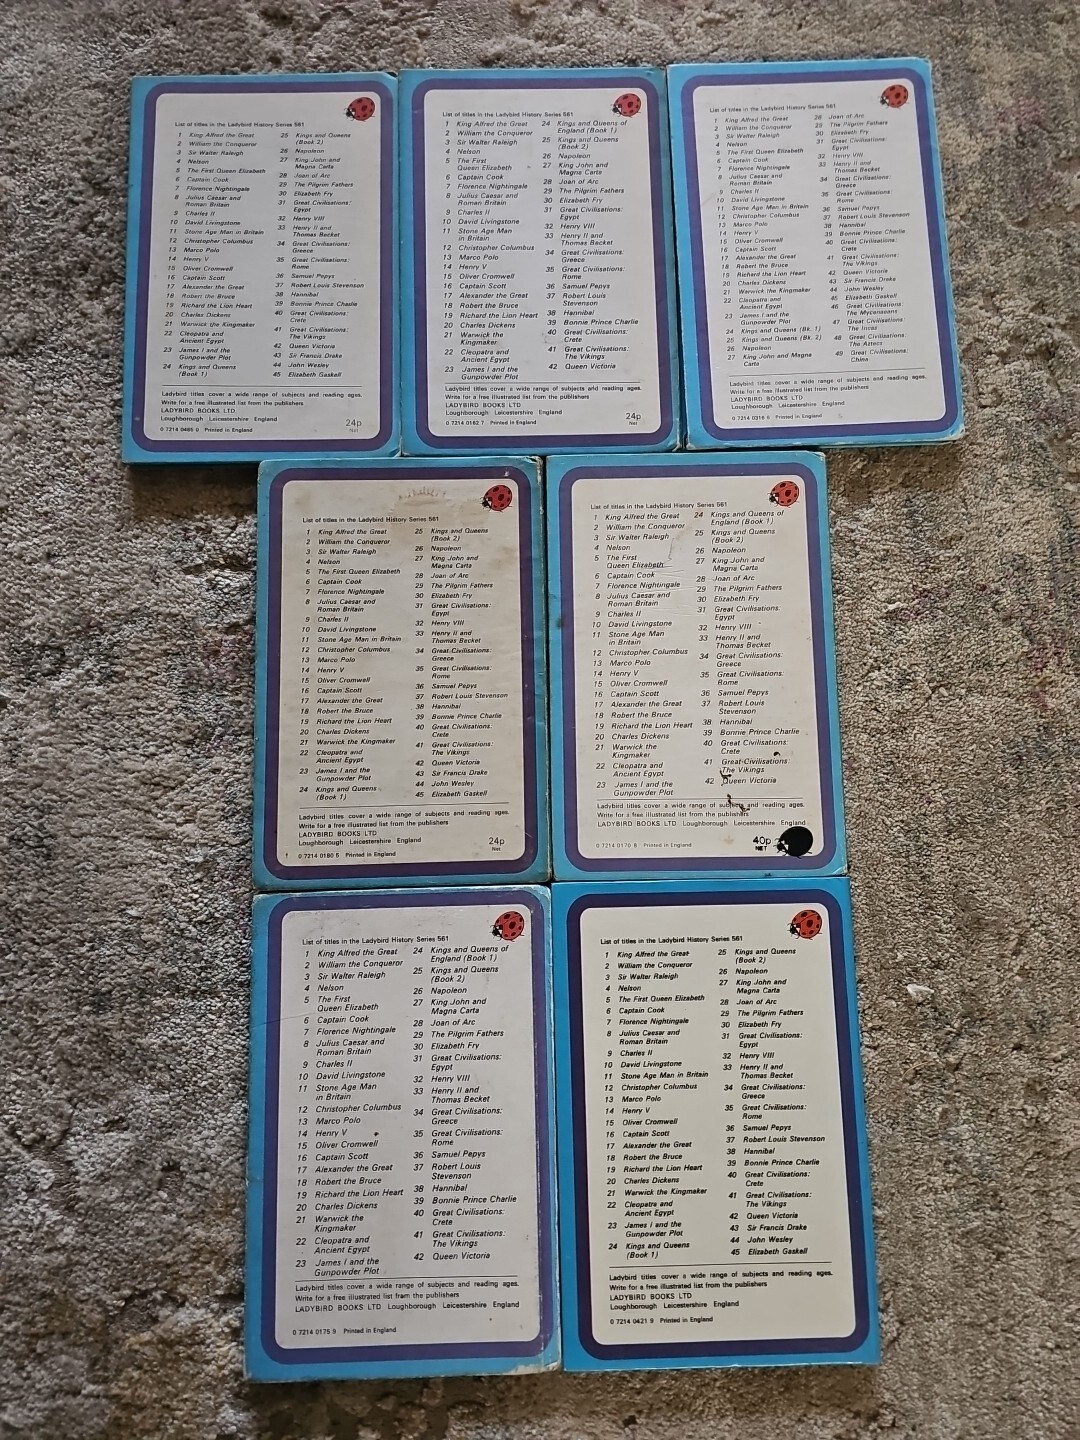 List of titles in the Ladybird History Series 561
1 King Alfred the Great
2 William the Conqueror
3 Sir Walter Raleigh
4 Nelson
5 The First Queen Elizabeth
6 Captain Cook
7 Florence Nightingale
8 Julius Caesar and
Roman Britain
9 Charles II
10 David Livingstone
11 Stone Age Man in Britain
12 Christopher Columbus
13 Marco Polo
14 Henry V
15 Oliver Cromwell
16 Captain Scott
17 Alexander the Great
18 Robert the Bruce
19 Richard the Lion Heart
20 Charles Dickens
21 Warwick the Kingmaker
22 Cleopatra and
Ancient Egypt
23 James I and the
Gunpowder Plot
24 Kings and Queens
(Book 1)
25 Kings and Queens
(Book 2)
26 Napoleon
27 King John and
Magna Carta
28 Joan of Arc
29 The Pilgrim Fathers
30 Elizabeth Fry
31 Great Civilisations:
Egypt
32 Henry VIII
33 Henry II and
Thomas Becket
34 Great Civilisations:
Greece
35 Great Civilisations:
Rome
36 Samuel Pepys
37 Robert Louis Stevenson
38 Hannibal
39 Bonnie Prince Charlie
40 Great Civilisations:
Crete
41 Great Civilisations:
The Vikings
42 Queen Victoria
43 Sir Francis Drake
44 John Wesley
45 Elizabeth Gaskell
Ladybird titles cover a wide range of subjects and reading ages.
Write for a free illustrated list from the publishers
LADYBIRD BOOKS LTD
Loughborough Leicestershire England
24p
Net
Printed in England
List of titles in the Ladybird History Series 561
1 King Alfred the Great
2 William the Conqueror
3 Sir Walter Raleigh
4 Nelson
5 The First
Queen Elizabeth
6 Captain Cook
7 Florence Nightingale
8 Julius Caesar and
Roman Britain
9 Charles II
10 David Livingstone
11 Stone Age Man
in Britain
12 Christopher Columbus
13 Marco Polo
14 Henry V
15 Oliver Cromwell
16 Captain Scott
17 Alexander the Great
18 Robert the Bruce
19 Richard the Lion Heart
20 Charles Dickens
21 Warwick the
Kingmaker
22 Cleopatra and
Ancient Egypt
23 James I and the
Gunpowder Plot
24 Kings and Queens of
England (Book 1)
25 Kings and Queens
(Book 2)
26 Napoleon
27 King John and
Magna Carta
28 Joan of Arc
29 The Pilgrim Fathers
30 Elizabeth Fry
31 Great Civilisations:
Egypt
32 Henry VIII
33 Henry II and
Thomas Becket
34 Great Civilisations:
Greece
35 Great Civilisations:
Rome
36 Samuel Pepys
37 Robert Louis
Stevenson
38 Hannibal
39 Bonnie Prince Charlie
40 Great Civilisations:
Crete
41 Great Civilisations:
The Vikings
42 Queen Victoria
Ladybird titles cover a wide range of subjects and reading ages.
Write for a free illustrated list from the publishers
LADYBIRD BOOKS LTD
Loughborough Leicestershire England
24p
Net
0 7214 0162 7 Printed in England
List of titles in the Ladybird History Series 561
1 King Alfred the Great
2 William the Conqueror
3 Sir Walter Raleigh
4 Nelson
5 The First Queen Elizabeth
6 Captain Cook
7 Florence Nightingale
8 Julius Caesar and
Roman Britain
9 Charles II
10 David Livingstone
11 Stone Age Man in Britain
12 Christopher Columbus
13 Marco Polo
14 Henry V
15 Oliver Cromwell
16 Captain Scott
17 Alexander the Great
18 Robert the Bruce
19 Richard the Lion Heart
20 Charles Dickens
21 Warwick the Kingmaker
22 Cleopatra and
Ancient Egypt
23 James I and the
Gunpowder Plot
24 Kings and Queens (Bk. 1)
25 Kings and Queens (Bk. 2)
26 Napoleon
27 King John and Magna
Carta
28 Joan of Arc
29 The Pilgrim Fathers
30 Elizabeth Fry
31 Great Civilisations:
Egypt
32 Henry VIII
33 Henry II and
Thomas Becket
34 Great Civilisations:
Greece
35 Great Civilisations:
Rome
36 Samuel Pepys
37 Robert Louis Stevenson
38 Hannibal
39 Bonnie Prince Charlie
40 Great Civilisations:
Crete
41 Great Civilisations:
The Vikings
42 Queen Victoria
43 Sir Francis Drake
44 John Wesley
45 Elizabeth Gaskell
46 Great Civilisations:
The Mycenaeans
47 Great Civilisations:
The Incas
48 Great Civilisations:
The Aztecs
49 Great Civilisations:
China
Ladybird titles cover a wide range of subjects and reading ages.
Write for a free illustrated list from the publishers
LADYBIRD BOOKS LTD
Loughborough Leicestershire England
Printed in England
List of titles in the Ladybird History Series 561
1 King Alfred the Great
2 William the Conqueror
3 Sir Walter Raleigh
4 Nelson
5 The First Queen Elizabeth
6 Captain Cook
7 Florence Nightingale
8 Julius Caesar and
Roman Britain
9 Charles II
10 David Livingstone
11 Stone Age Man in Britain
12 Christopher Columbus
13 Marco Polo
14 Henry V
15 Oliver Cromwell
16 Captain Scott
17 Alexander the Great
18 Robert the Bruce
19 Richard the Lion Heart
20 Charles Dickens
21 Warwick the Kingmaker
22 Cleopatra and
Ancient Egypt
23 James I and the
Gunpowder Plot
24 Kings and Queens
(Book 1)
25 Kings and Queens
(Book 2)
26 Napoleon
27 King John and
Magna Carta
28 Joan of Arc
29 The Pilgrim Fathers
30 Elizabeth Fry
31 Great Civilisations:
Egypt
32 Henry VIII
33 Henry II and
Thomas Becket
34 Great Civilisations:
Greece
35 Great Civilisations:
Rome
36 Samuel Pepys
37 Robert Louis Stevenson
38 Hannibal
39 Bonnie Prince Charlie
40 Great Civilisations:
Crete
41 Great Civilisations:
The Vikings
42 Queen Victoria
43 Sir Francis Drake
44 John Wesley
45 Elizabeth Gaskell
Ladybird titles cover a wide range of subjects and reading ages.
Write for a free illustrated list from the publishers
LADYBIRD BOOKS LTD
Loughborough Leicestershire England
24p
Net
0 7214 0180 5 Printed in England
List of titles in the Ladybird History Series 561
1 King Alfred the Great
2 William the Conqueror
3 Sir Walter Raleigh
4 Nelson
5 The First
Queen Elizabeth
6 Captain Cook
7 Florence Nightingale
8 Julius Caesar and
Roman Britain
9 Charles II
10 David Livingstone
11 Stone Age Man
in Britain
12 Christopher Columbus
13 Marco Polo
14 Henry V
15 Oliver Cromwell
16 Captain Scott
17 Alexander the Great
18 Robert the Bruce
19 Richard the Lion Heart
20 Charles Dickens
21 Warwick the
Kingmaker
22 Cleopatra and
Ancient Egypt
23 James I and the
Gunpowder Plot
24 Kings and Queens of
England (Book 1)
25 Kings and Queens
(Book 2)
26 Napoleon
27 King John and
Magna Carta
28 Joan of Arc
29 The Pilgrim Fathers
30 Elizabeth Fry
31 Great Civilisations:
Egypt
32 Henry VIII
33 Henry II and
Thomas Becket
34 Great Civilisations:
Greece
35 Great Civilisations:
Rome
36 Samuel Pepys
37 Robert Louis
Stevenson
38 Hannibal
39 Bonnie Prince Charlie
40 Great Civilisations:
Crete
41 Great Civilisations:
The Vikings
42 Queen Victoria
Ladybird titles cover a wide range of subjects and reading ages.
Write for a free illustrated list from the publishers
LADYBIRD BOOKS LTD Loughborough Leicestershire England
40p
NET
0 7214 0170 8 Printed in England
List of titles in the Ladybird History Series 561
1 King Alfred the Great
2 William the Conqueror
3 Sir Walter Raleigh
4 Nelson
5 The First
Queen Elizabeth
6 Captain Cook
7 Florence Nightingale
8 Julius Caesar and
Roman Britain
9 Charles II
10 David Livingstone
11 Stone Age Man
in Britain
12 Christopher Columbus
13 Marco Polo
14 Henry V
15 Oliver Cromwell
16 Captain Scott
17 Alexander the Great
18 Robert the Bruce
19 Richard the Lion Heart
20 Charles Dickens
21 Warwick the
Kingmaker
22 Cleopatra and
Ancient Egypt
23 James I and the
Gunpowder Plot
24 Kings and Queens of
England (Book 1)
25 Kings and Queens
(Book 2)
26 Napoleon
27 King John and
Magna Carta
28 Joan of Arc
29 The Pilgrim Fathers
30 Elizabeth Fry
31 Great Civilisations:
Egypt
32 Henry VIII
33 Henry II and
Thomas Becket
34 Great Civilisations:
Greece
35 Great Civilisations:
Rome
36 Samuel Pepys
37 Robert Louis
Stevenson
38 Hannibal
39 Bonnie Prince Charlie
40 Great Civilisations:
Crete
41 Great Civilisations:
The Vikings
42 Queen Victoria
Ladybird titles cover a wide range of subjects and reading ages.
Write for a free illustrated list from the publishers
LADYBIRD BOOKS LTD Loughborough Leicestershire England
0 7214 0175 9 Printed in England
List of titles in the Ladybird History Series 561
1 King Alfred the Great
2 William the Conqueror
3 Sir Walter Raleigh
4 Nelson
5 The First Queen Elizabeth
6 Captain Cook
7 Florence Nightingale
8 Julius Caesar and
Roman Britain
9 Charles II
10 David Livingstone
11 Stone Age Man in Britain
12 Christopher Columbus
13 Marco Polo
14 Henry V
15 Oliver Cromwell
16 Captain Scott
17 Alexander the Great
18 Robert the Bruce
19 Richard the Lion Heart
20 Charles Dickens
21 Warwick the Kingmaker
22 Cleopatra and
Ancient Egypt
23 James I and the
Gunpowder Plot
24 Kings and Queens
(Book 1)
25 Kings and Queens
(Book 2)
26 Napoleon
27 King John and
Magna Carta
28 Joan of Arc
29 The Pilgrim Fathers
30 Elizabeth Fry
31 Great Civilisations:
Egypt
32 Henry VIII
33 Henry II and
Thomas Becket
34 Great Civilisations:
Greece
35 Great Civilisations:
Rome
36 Samuel Pepys
37 Robert Louis Stevenson
38 Hannibal
39 Bonnie Prince Charlie
40 Great Civilisations:
Crete
41 Great Civilisations:
The Vikings
42 Queen Victoria
43 Sir Francis Drake
44 John Wesley
45 Elizabeth Gaskell
Ladybird titles cover a wide range of subjects and reading ages.
Write for a free illustrated list from the publishers
LADYBIRD BOOKS LTD
Loughborough Leicestershire England
0 7214 0421 9 Printed in England